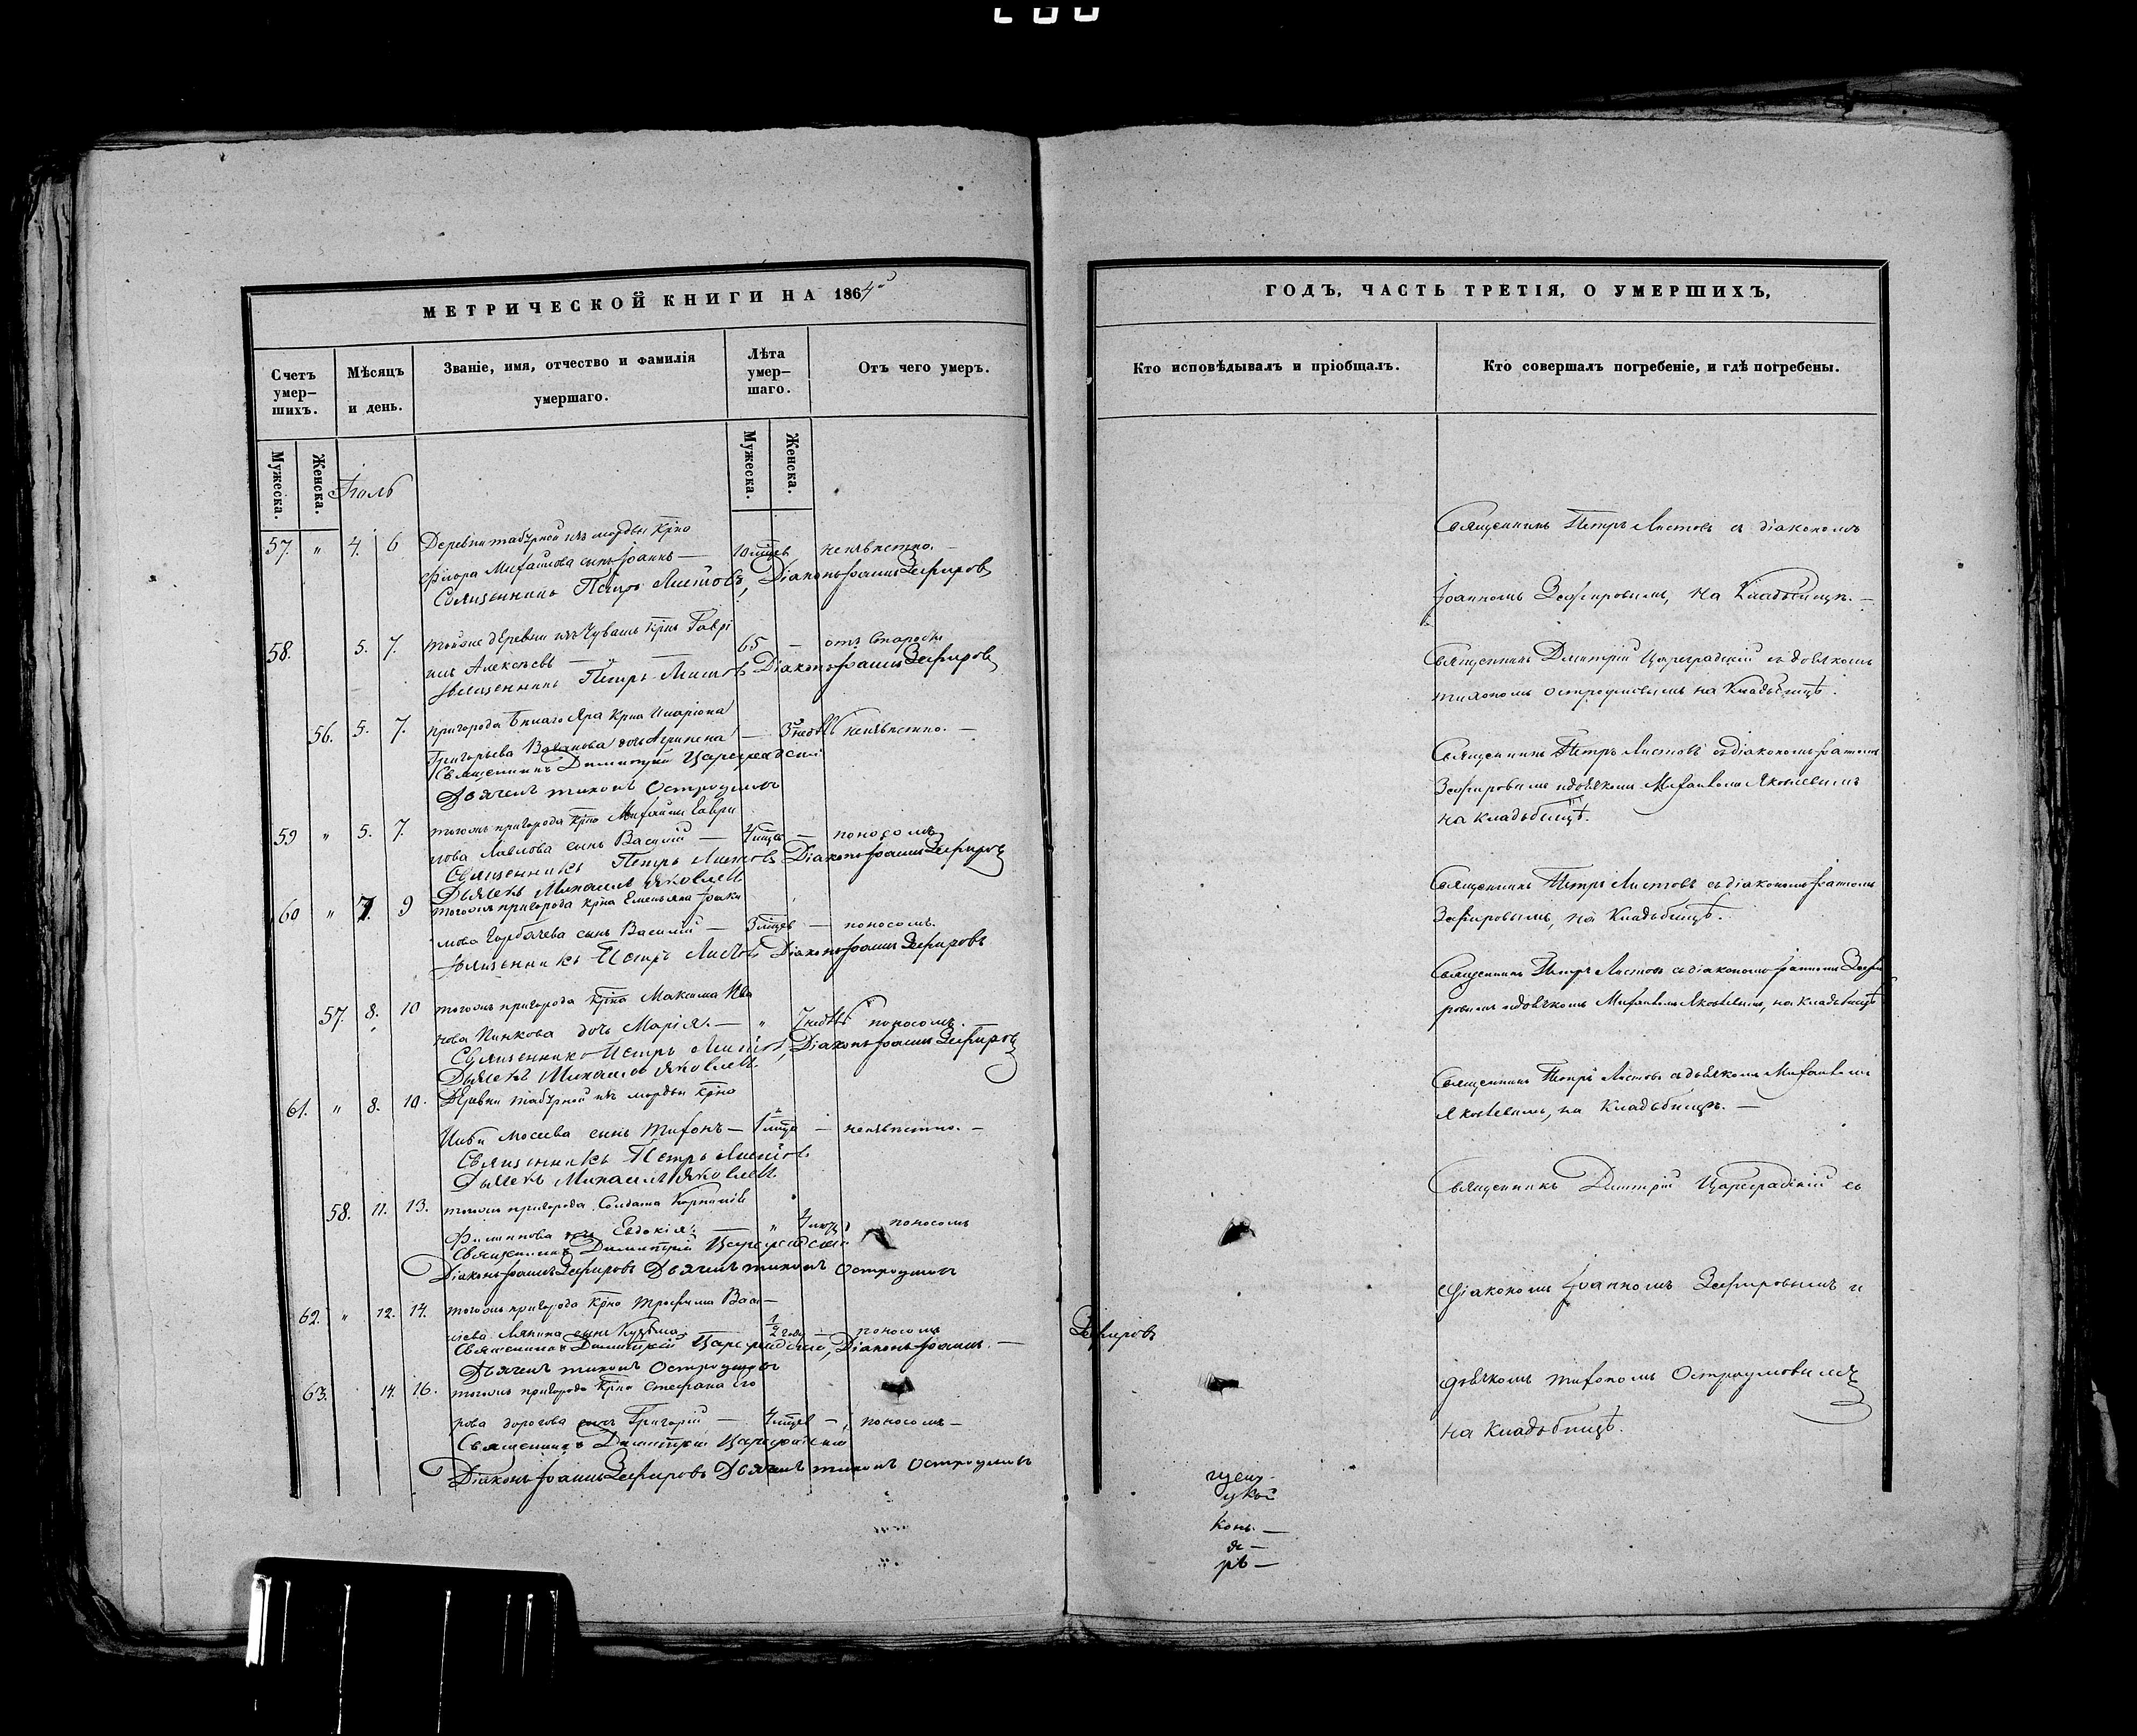 МЕТРИЧЕСКОЙ КНИГИ НА 1864
Счетъ умер-шихъ.
Мѣсяцъ и день.
Званіе, имя, отчество и фамилія умершаго.
Лѣта умер-шаго.
Отъ чего умеръ.
Мужеска.
Женска.
Мужеска.
Женска.
Іюль
57. " 4. 6 Деревни табурной изъ мордвы крно
Фіора Михаилова сынъ Іоаннъ — неизвѣстно. —
Священникъ Петръ Листовъ, Діаконъ Іоаннъ Зефировъ
58. 5. 7. тойже деревни изъ Чувашъ крнъ Гаврі
илъ Алексѣевъ — 65 — отъ старости
Священникъ Петръ Листовъ Діаконъ Іоаннъ Зефировъ
56. 5. 7. пригорода Бѣлаго Яра крна Иларіона
Григорьева дочь Агрипена — 3 недѣль неизвѣстно. —
Священникъ Димитрій Цареградскій
Дьячекъ Тихонъ Остроумовъ
59 " 5. 7. тогожъ пригорода крно Михаила Гаври
лова Павлова сынъ Василій — 4 мцев — поносомъ
Священникъ Петръ Листовъ Діаконъ Іоаннъ Зефировъ
Дьячекъ Михаилъ Яковлевъ
60 " 7. 9 тогожъ пригорода крна Емельяна Іоаки
мова Горбачева сынъ Василій — 3 мцев — поносомъ.
Священникъ Петръ Листовъ Діаконъ Іоаннъ Зефировъ
57. 8. 10 тогожъ пригорода крна Максима Ива
нова Пинкова дочь Марія. — " 7 недѣль поносомъ.
Священникъ Петръ Листовъ, Діаконъ Іоаннъ Зефировъ
Дьячекъ Михаилъ Яковлевъ.
61. " 8. 10. Деревни табурной изъ мордвы крно
Мосеева сынъ Тихонъ — 1 мца — неизвѣстно. —
Священникъ Петръ Листовъ
Дьячекъ Михаилъ Яковлевъ
58. 11. 13. тогожъ пригорода Солдата Корнилія
Филипова дочь Евдокія — " 4 поносомъ
Священникъ Димитрій Цареградскій
Діаконъ Іоаннъ Зефировъ Дьячекъ Тихонъ Остроумовъ
62. " 12. 14. тогожъ пригорода крно Трофима Васи—
льева Лякина сынъ Кузьма 1/2 года — поносомъ
Священникъ Димитрій Цареградскій, Діаконъ Іоаннъ —
Дьячекъ Тихонъ Остроумовъ
63. 14. 16. тогожъ пригорода крно Стефана Его
рова дорогова сынъ Григорій — 4 мцев — поносомъ —
Священникъ Димитрій Цареградскій
Діаконъ Іоаннъ Зефировъ Дьячекъ Тихонъ Остроумовъ
ГОДЪ, ЧАСТЬ ТРЕТІЯ, О УМЕРШИХЪ,
Кто исповѣдывалъ и пріобщалъ.
Кто совершалъ погребеніе, и гдѣ погребены.
Священникъ Петръ Листовъ съ діакономъ
Іоанномъ Зефировымъ, на кладьбищѣ. —
Священникъ Дмитрій Цареградскій съ дьячкомъ
Тихономъ Остроумовымъ на кладьбищѣ.
Священникъ Петръ Листовъ съ діакономъ Іоанномъ
Зефировымъ и дьячкомъ Михаиломъ Яковлевымъ
на кладьбищѣ.
Священникъ Петръ Листовъ съ діакономъ Іоанномъ
Зефировымъ, на кладьбищѣ.
Священникъ Петръ Листовъ съ діакономъ Іоанномъ Зефи
ровымъ и дьячкомъ Михаиломъ Яковлевымъ, на кладьбищѣ
Священникъ Петръ Листовъ съ дьячкомъ Михаиломъ
Яковлевымъ, на кладьбищѣ. —
Священникъ Димитрій Цареградскій съ
діакономъ Іоанномъ Зефировымъ и
Зефировъ
дьячкомъ Тихономъ Остроумовымъ
на кладьбищѣ.
конъ —